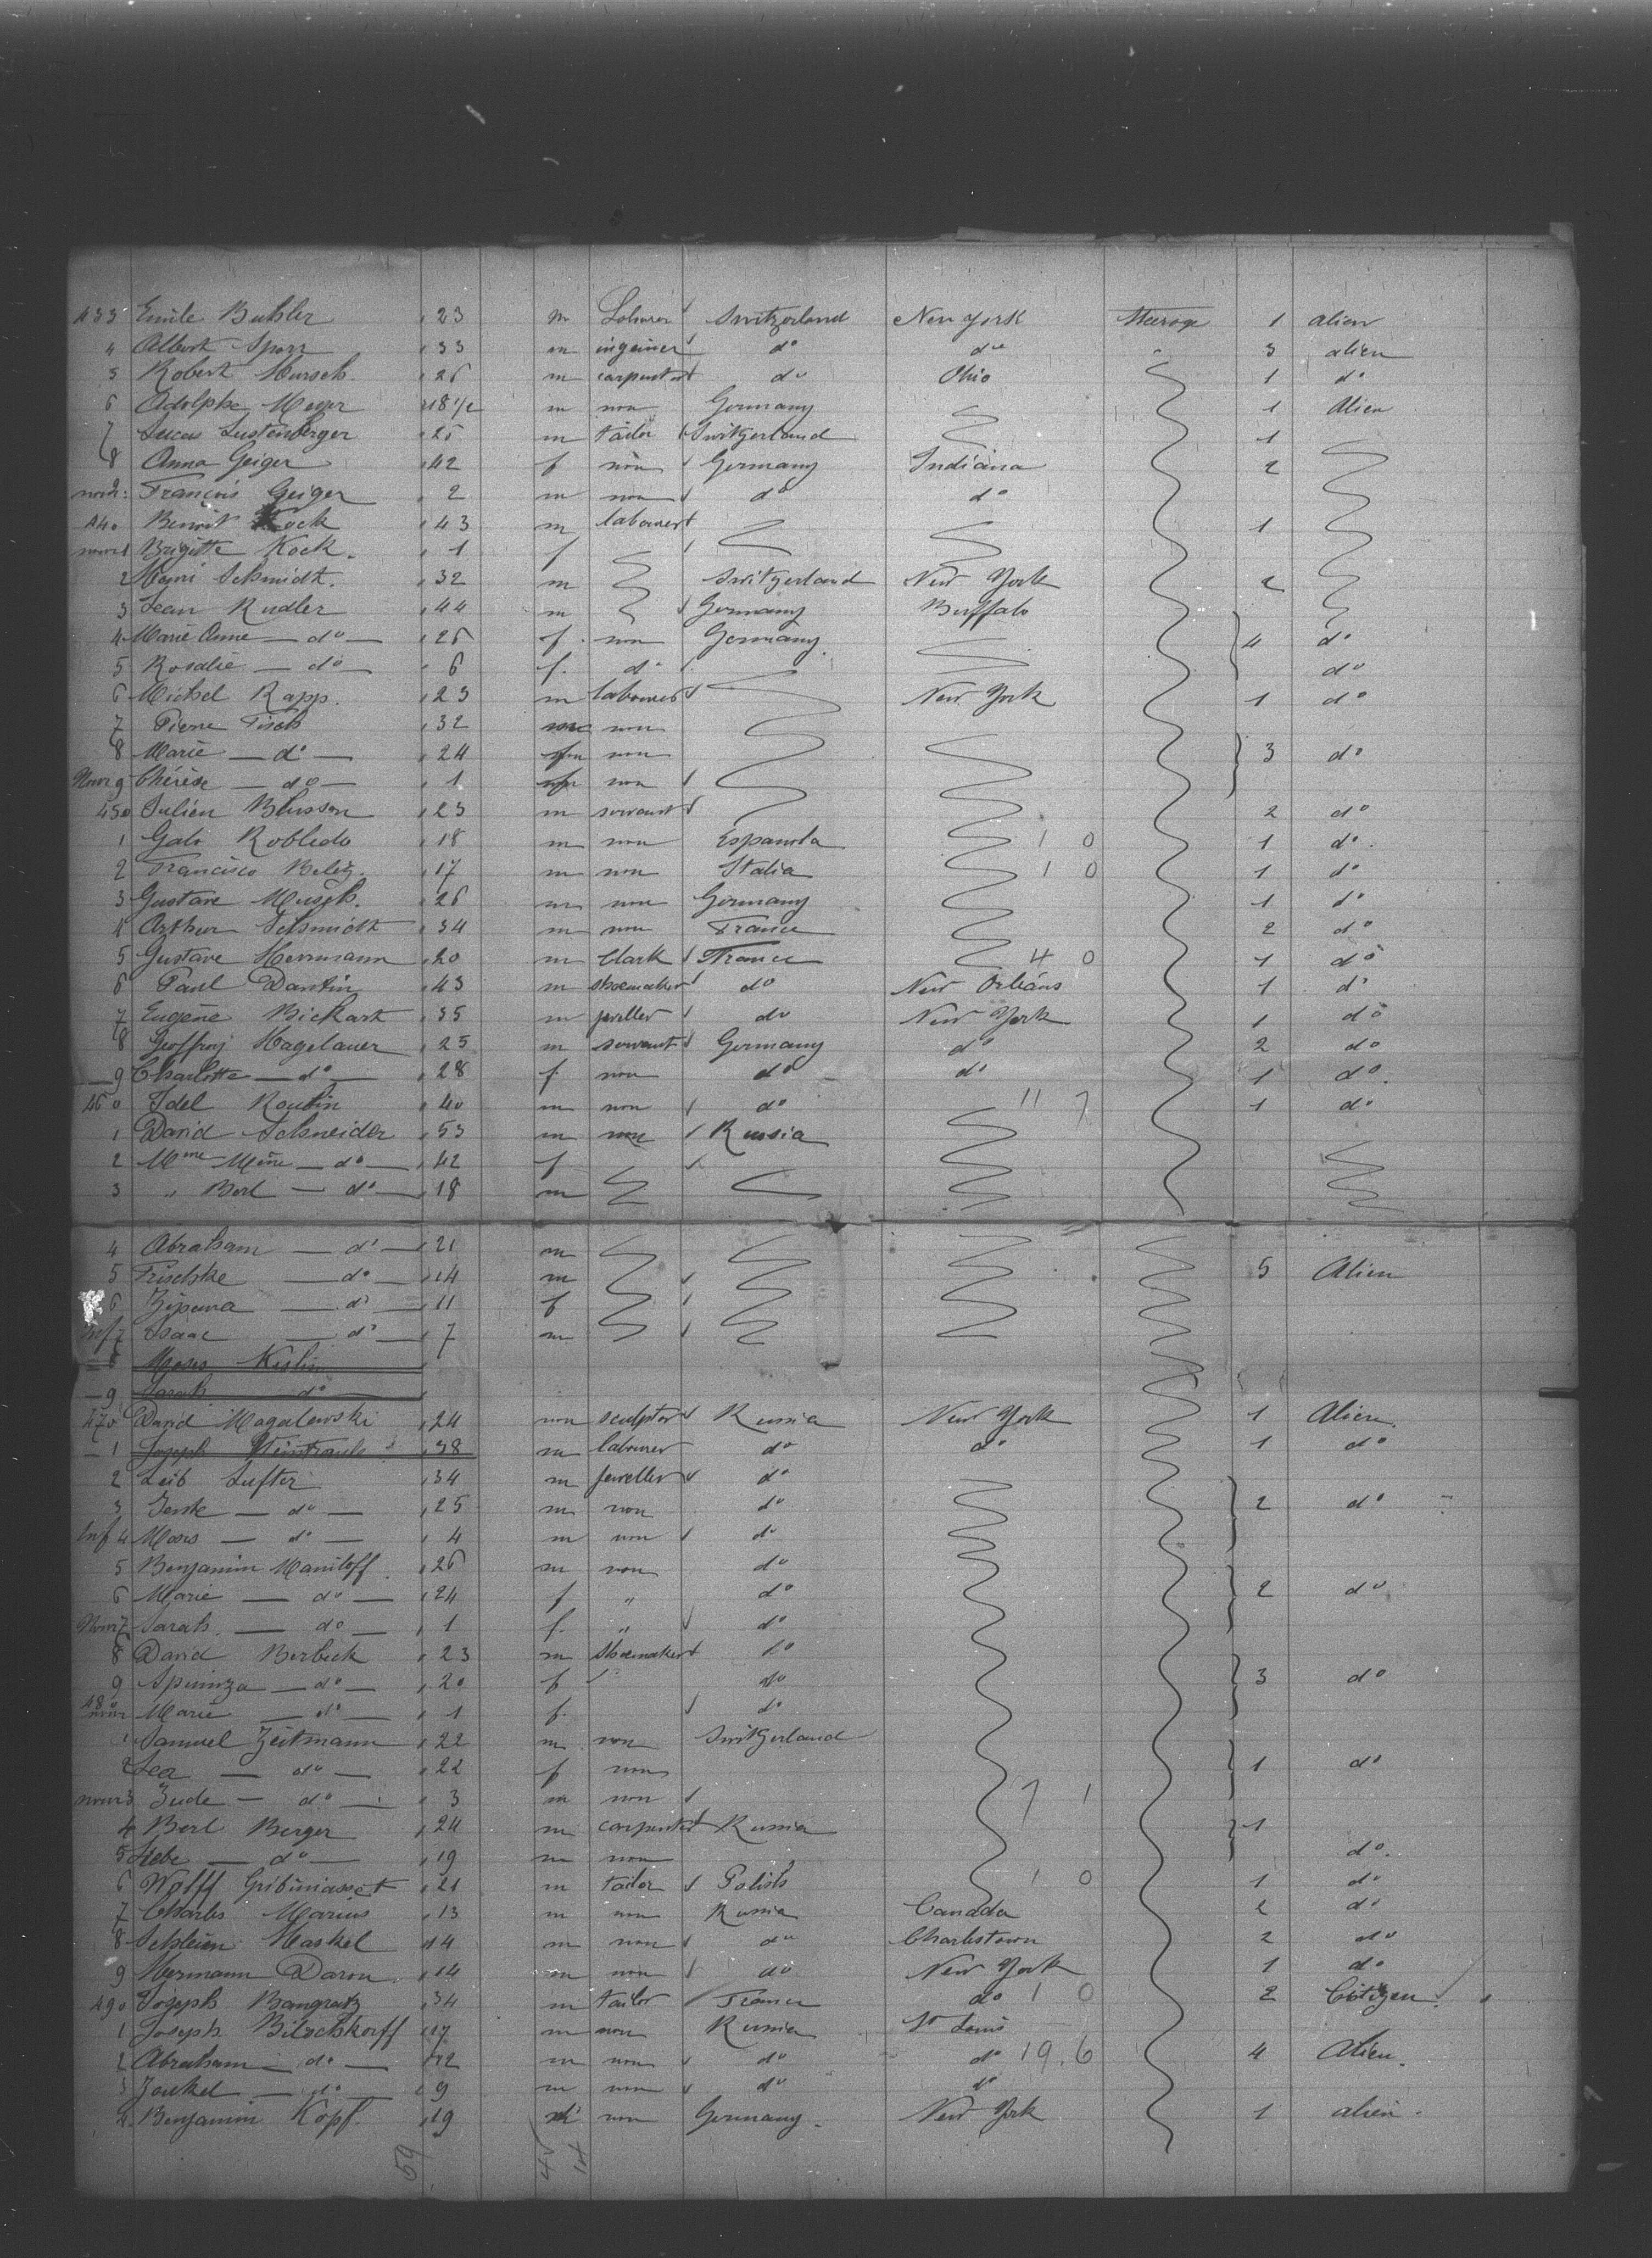 433 Emile Buhler 23 m Labourer Switzerland New York Steerage 1 alien
4 Albert Sporr 33 m ingeineer do do 3 alien
5 Robert Hursch 26 m carpenter do Ohio 1 do
6 Adolphe Meyer 18 1/2 m non Germany 1 Alien
7 Lucas Lustenberger 25 m tailor Switzerland 1
8 Anna Geiger 42 f non Germany Indiana 2
nour. 9 François Geiger 2 m non do do
440 Benoit Kock 43 m labourer 1
nour 1 Brigitte Kock 1 f
2 Henri Schmidt 32 m Switzerland New York 2
3 Jean Rudler 44 m Germany Buffalo
4 Marie Anne do 26 f non Germany 4 do
5 Rosalie do 6 f. do do
6 Michel Rapp. 23 m labourer New York 1 do
7 Pierre Fisch 32 m non
8 Marie do 24 f non 3 do
Nour 9 Thérèse do 1 f non
450 Julien Blusson 23 m servant 2 do
1 Galo Robledo 18 m non Espanola 1 0 1 do.
2 Francisco Beletz. 17 m non Italia 1 0 1 do
3 Gustave Musch. 26 m non Germany 1 do
4 Arthur Schmidt 34 m non France 2 do
5 Gustave Herrmann 20 m Clark France 4 0 1 do
6 Paul Dantin 43 m shoemaker do New Orléans 1 do
7 Eugène Bickart 35 m jweller do New York 1 do
8 Geoffroy Hagelauer 25 m servant Germany do 2 do
9 Charlotte do 28 f non do do 1 do.
460 Idel Routin 40 m non do 11 7 1 do
1 David Schneider 53 m non Russia
2 Mme Mine do 42 f
3 " Berl do 18 m
4 Abraham do 21 m
5 Frischke do 14 m 5 Alien
6 Zipena do 11 f
Inf 7 Isaac do 7 m
8 Moses Kislin
9 Sarah do
470 David Magalewski 24 non sculptor Russia New York 1 Alien.
1 Joseph Weintraub 38 m labourer do do 1 do
2 Leib Lufter 34 m Jeweller do
3 Jente do 25 m non do 2 do
Inf 4 Moses do 4 m non do
5 Benjamin Maniloff 26 m non do
6 Marie do 24 f " do 2 do
Nour 7 Sarah do 1 f. " do
8 David Berbeck 23 m Shoemaker do
9 Sprinza do 20 f do 3 do
480 nour Marie do 1 f. do
1 Samuel Zeitmann 22 m non Switzerland
2 Lea do 22 f non 1 do
nour 3 Jude do 3 m non 7 1
4 Berl Berger 24 m carpenter Russia 1
5 Liebe do 19 m non do.
6 Wolff 21 m tailor Polish 1 0 1 do
7 Charles Marius 13 m non Russia Canada 2 do
8 Schleim Maskel 14 m non do Charlestown 2 do
9 Hermann Daron 14 m non do New York 1 do
490 Joseph Bangratz 34 m tailor France do 1 0 2 Citizen
1 Joseph Bilochkorff 17 m non Russia St Louis
2 Abraham do 12 m non do do 19.6 4 Alien.
3 Jankel do 9 m non do do
4 Benjamin Kopf. 19 m non Germany New York 1 alien.
59